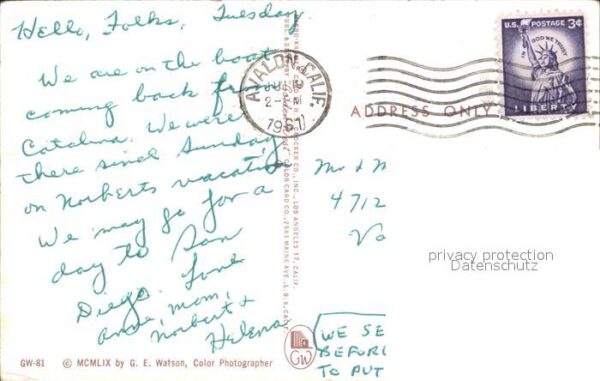 Hello, Folks, Tuesday
We are on the boat
coming back from
Catalina. We were
there since Sunday
on Norberts vacation
We may go for a
day to San
Diego. Love
Anna, Mom,
Norbert &
Helena
GW-81 © MCMLIX by G. E. Watson, Color Photographer
COLOR CARD CO., 2583 MAINE AVE., L. B. 6, CALIF.
CROCKER CO., INC., LOS ANGELES 17, CALIF.
GW
AVALON, CALIF.
2-PM
1961
U.S. POSTAGE 3¢
IN GOD WE TRUST
LIBERTY
ADDRESS ONLY
Mr & M
4712
Va
privacy protection
Datenschutz
WE SE
BEFOR
TO PUT